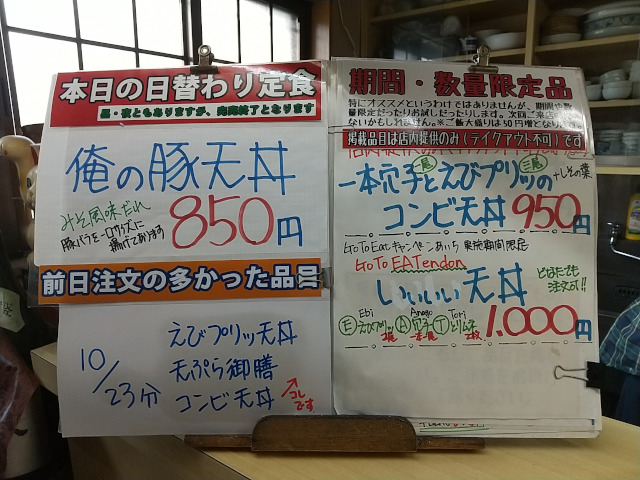 本日の日替わり定食
昼・夜ともありますが、完売終了となります
俺の豚天丼
みそ風味だれ
豚バラを一口サイズに
揚げております
850円
前日注文の多かった品
10/23分
えびプリッ天丼
天ぷら御膳
コンビ天丼
コレ
です
期間・数量限定品
特にオススメというわけではありませんが、期間や数
量限定だったりお試しだったりします。次回ご来店
ないかもしれません。※ご飯大盛りは50円増となり
掲載品目は店内提供のみ(テイクアウト不可)です
一本穴子とえびプリッの
二尾
+しその葉
コンビ天丼 950円
Go To Eatキャンペーンあいち 実施期間限定
Go To EATendon
いいいい天丼
どなたでも
注文可!!
Ebi Anago Tori
Eえびプリッ A穴子 Tとりムネ
2尾 一本 2枚
1.000円